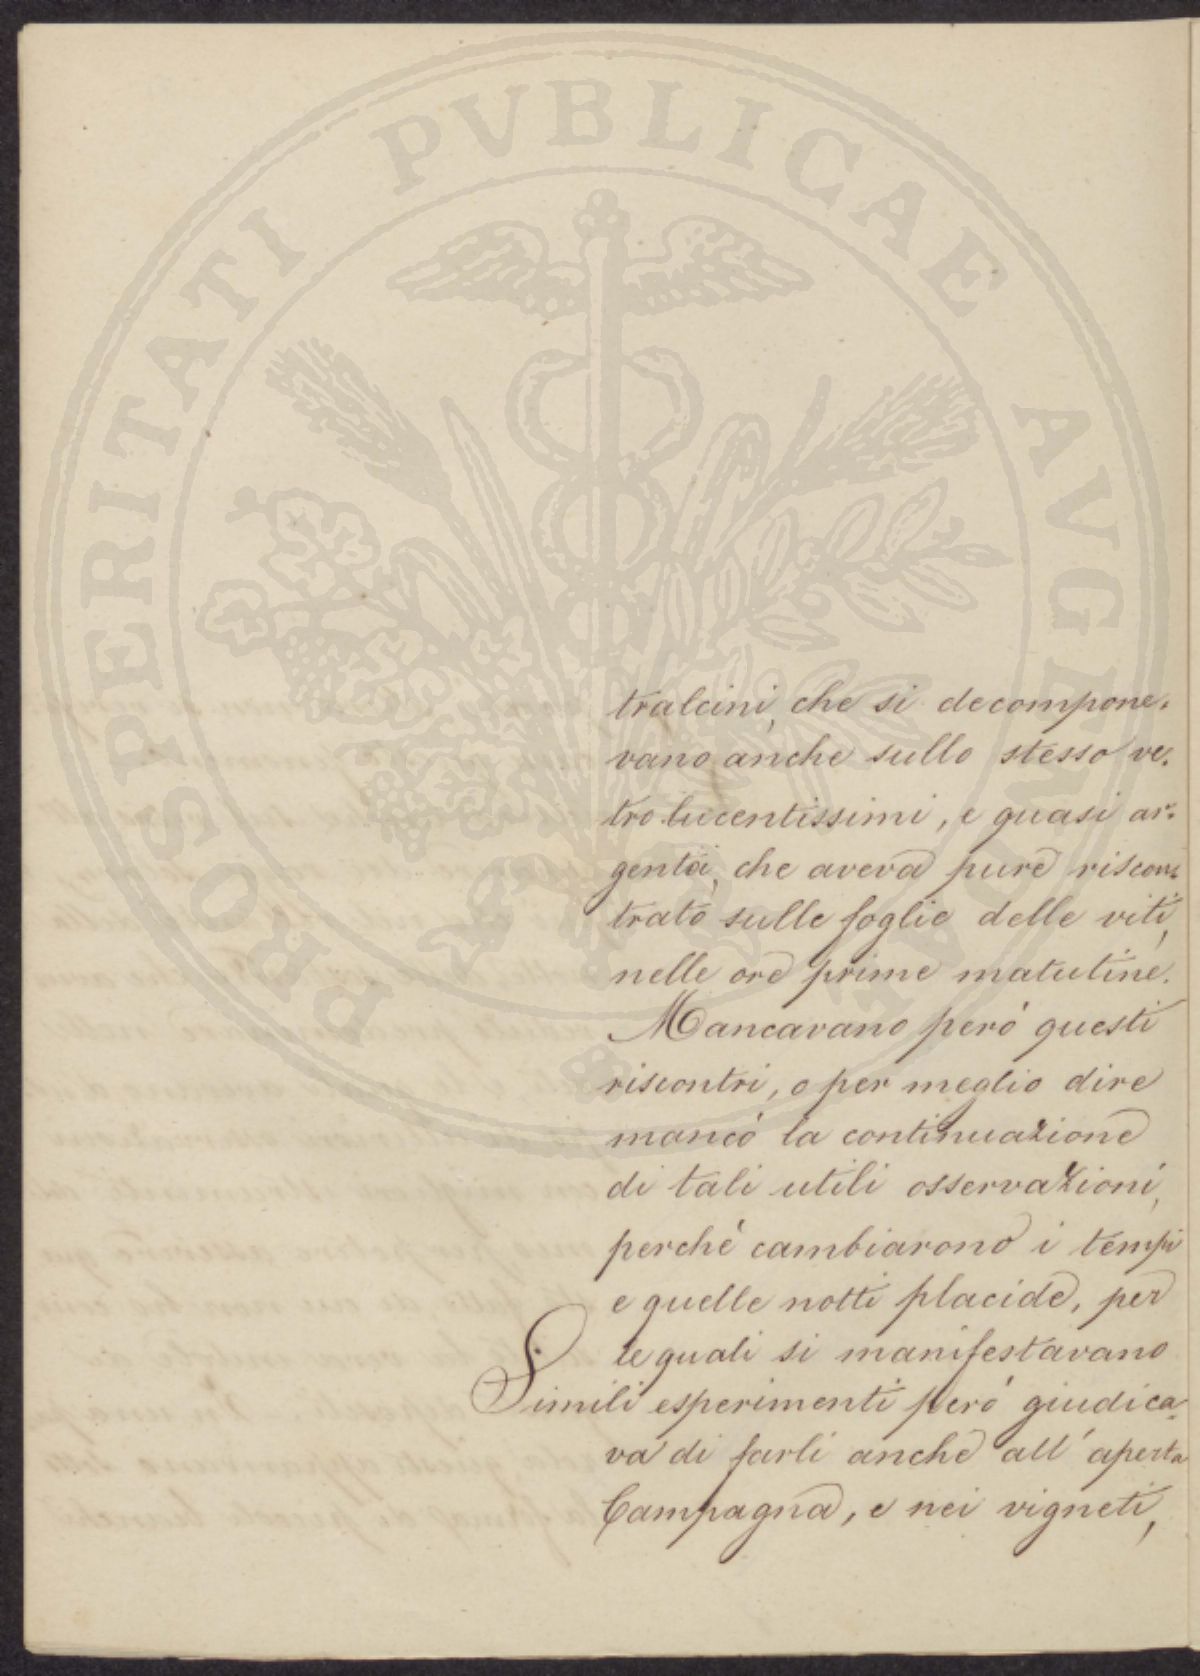 PROSPERITATI PVBLICAE AVGENDAE
tralcini, che si decompone-
vano anche sullo stesso ve-
tro lucentissimi, e quasi ar-
gentei, che aveva pure riscon-
trato sulle foglie delle viti,
nelle ore prime matutine.
Mancavano peró questi
riscontri, o per meglio dire
mancó la continuazione
di tali utili osservazioni,
perché cambiarono i tempi
e quelle notti placide, per
le quali si manifestavano
Simili esperimenti peró giudica-
va di farli anche all' aperta
Campagna, e nei vigneti,